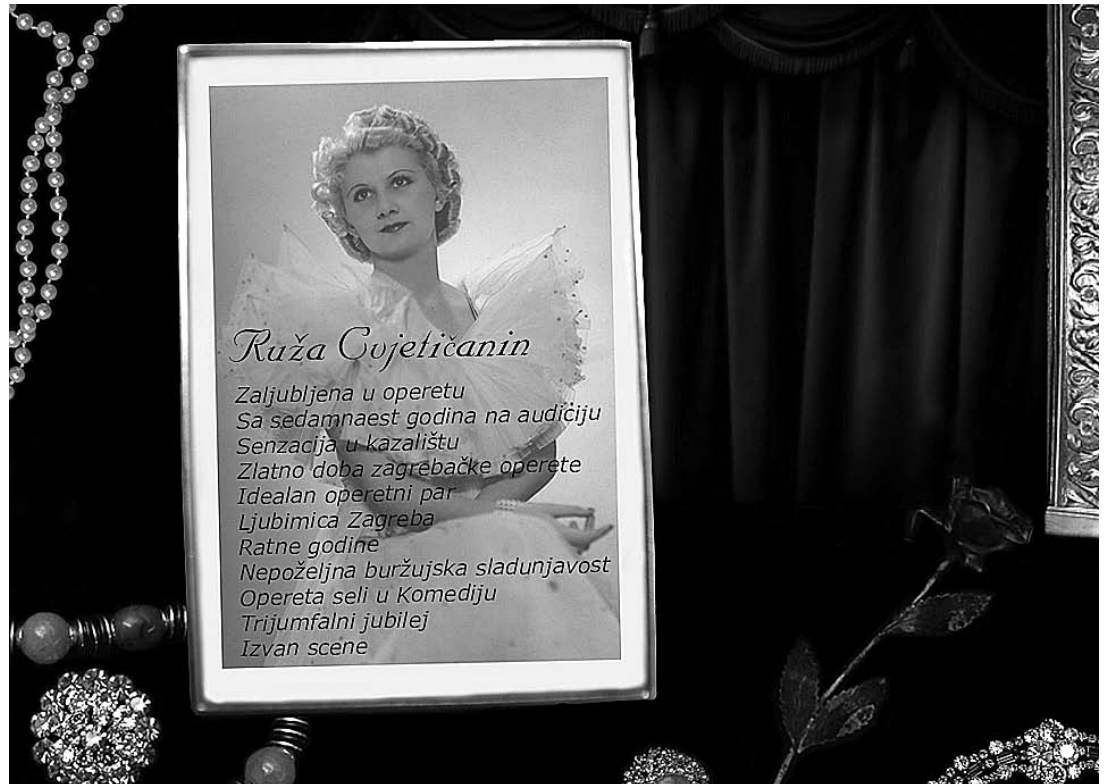 Ruža Cvjetičanin
Zaljubljena u operetu
Sa sedamnaest godina na audiciju
Senzacija u kazalištu
Zlatno doba zagrebačke operete
Idealan operetni par
Ljubimica Zagreba
Ratne godine
Nepoželjna buržujska sladunjavost
Opereta seli u Komediju
Trijumfalni jubilej
Izvan scene